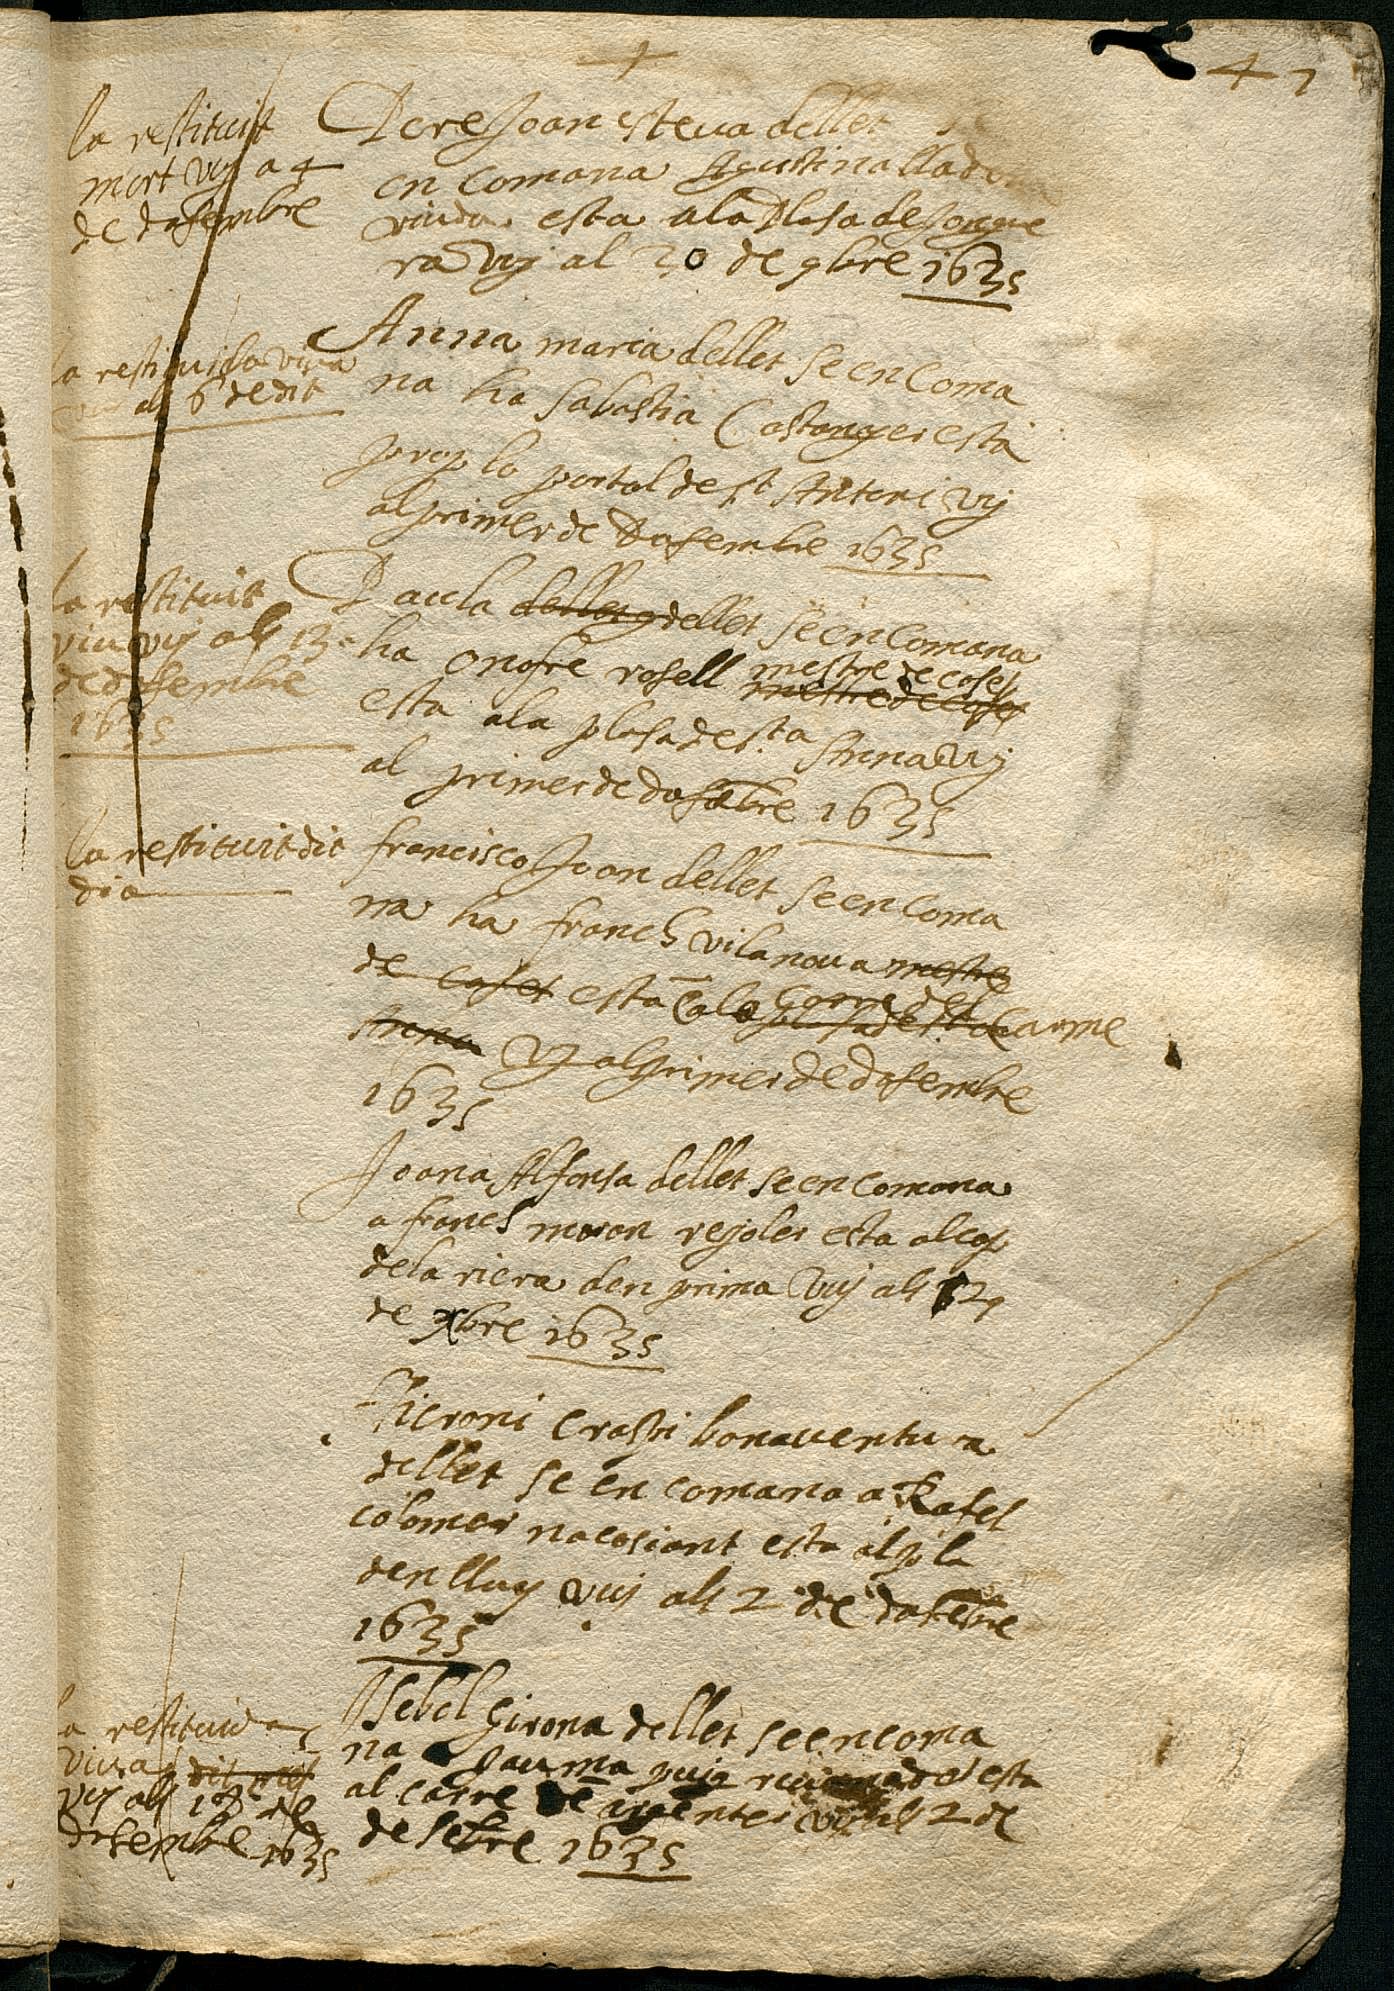 +
47
la restituit
mort vuy a 4
de dasembre
Pere Joan esteva dellet se
en comana Agustina llado
viuda esta ala Plasa de Jonque
ra vuy al 20 de 9bre 1635
la restituida viva
vuy als 6 de dit
Anna maria dellet se en coma
na ha sabastia Castanyer esta
prop lo portal de st Antoni vuy
al primer de Dasembre 1635
la restituit
viu vuy als 13
de dasembre
1635
Paula dellet se en comana
ha onofre rosell mestre de cases
mestre de cases
esta ala plasa de sta Anna vuy
al primer de dasebre 1635
la restituit dit
dia
francisco Joan dellet se en coma
na ha franch vilanova mestre
de cases esta al carre del Carme
Anna vuy al primer de dasembre
1635
Joana Alfonsa dellet se en comana
a franch moron rejoler esta al cap
de la riera den prima vuy als 29
de 9bre 1635
Hieroni crasti bonaventura
dellet se en comana a Rafel
colomer nacosiant esta al pla
den lluy vuy als 2 de dasebre
1635
la restituida
viva dit
vuy als 18 de
desembre 1635
Isebel Girona dellet se en coma
na a Jauma puja esta
al carre de vuy als 2 de
desebre 1635